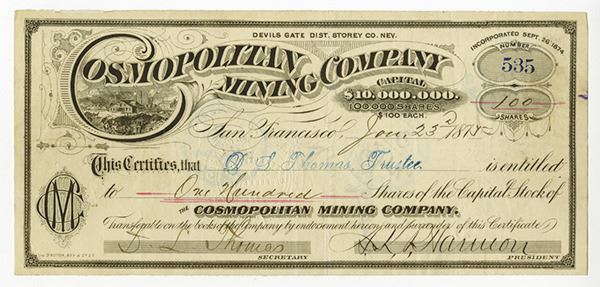 DEVILS GATE DIST. STOREY CO. NEV.
INCORPORATED SEPT. 26 1874.
COSMOPOLITAN
MINING COMPANY
NUMBER
535
CAPITAL
$10,000,000.
100,000 SHARES.
$100 EACH.
100
SHARES
San Francisco, Jan 23d 1875
This Certifies, that D. L. Thomas, Trustee is entitled
to One Hundred Shares of the Capital Stock of
THE COSMOPOLITAN MINING COMPANY.
Transferable on the books of the Company by endorsement hereon and surrender of this Certificate
CMC
D. L. Thomas
SECRETARY
PRESIDENT